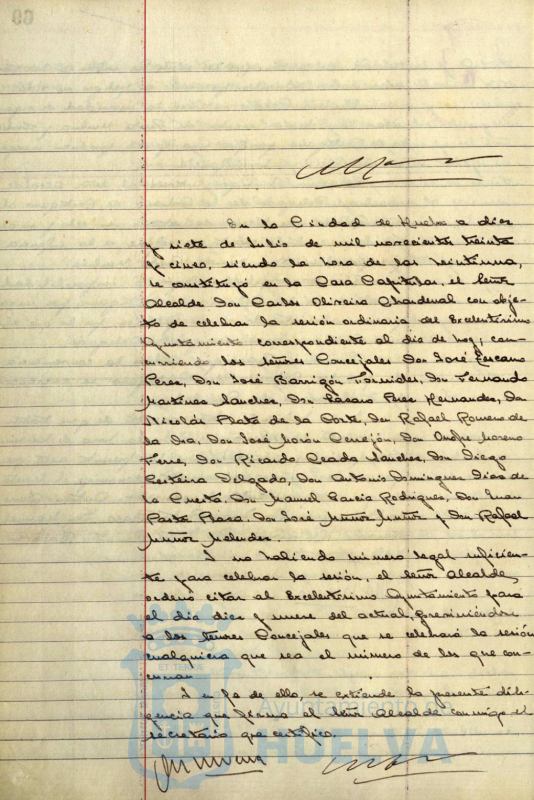 En la Ciudad de Huelva a diez
y siete de Julio de mil novecientos treinta
y cinco, siendo la hora de las veintiuna,
se constituyó en la Casa Capitular, el Señor
Alcalde Don Carlos Oliveira Chardenal con obje-
to de celebrar la sesión ordinaria del Excelentísimo
Ayuntamiento correspondiente al día de hoy; con-
curriendo los señores Concejales Don José Lescano
Perez, Don José Barrigón Fornieles, Don Fernando
Martinez Sanchez, Don Lázaro Perez Hernandez, Don
Nicolás Plata de la Corte, Don Rafael Romero de
la Osa, Don José Morón Cerrejón, Don Onofre Moreno
Ferre, Don Ricardo Sanchez, Don Diego
Delgado, Don Antonio Dominguez Diaz de
la Don Manuel Garcia Rodriguez, Don Juan
Don José Muñoz Muñoz y Don Rafael
Muñoz Melendez.
Y no habiendo número legal suficien-
te para celebrar la sesión, el señor Alcalde,
ordenó citar al Excelentísimo Ayuntamiento para
el día diez y nueve del actual, previniéndose
a los señores Concejales que se celebrará la sesión
cualquiera que sea el número de los que con-
curran
Y en fe de ello, se extiende la presente dili-
gencia que firma el Señor Alcalde conmigo el
secretario que certifico.
Ayuntamiento de
HUELVA